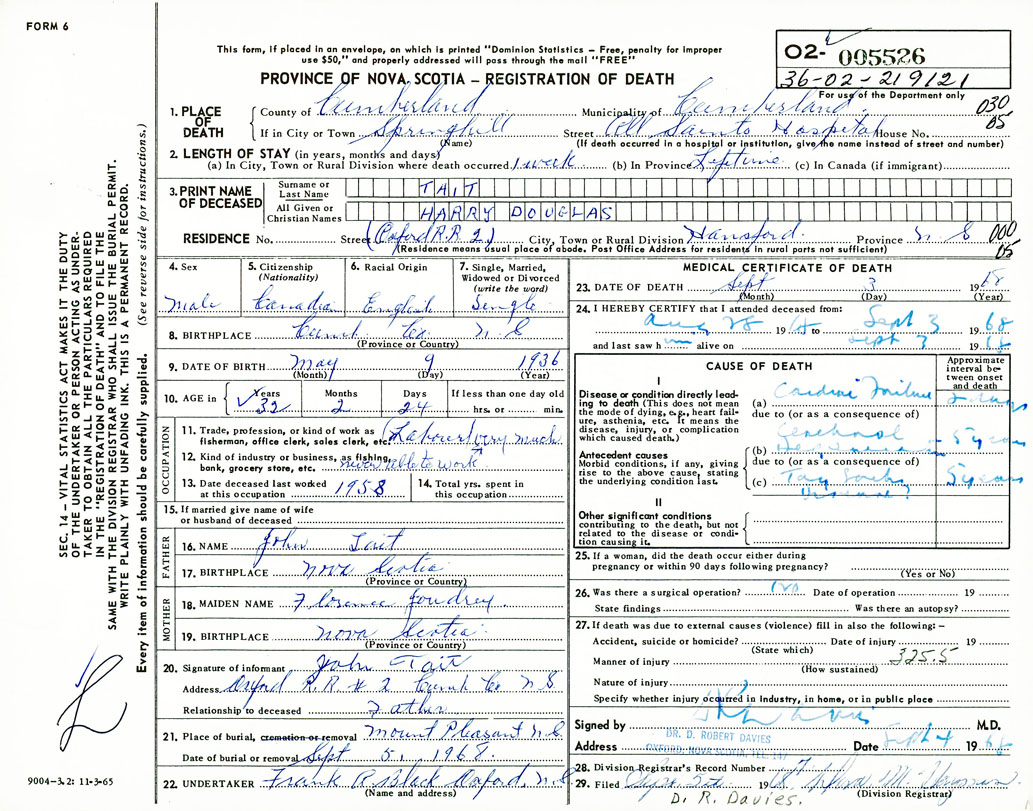 FORM 6
This form, if placed in an envelope, on which is printed "Dominion Statistics – Free, penalty for improper
use $50," and properly addressed will pass through the mail "FREE"
PROVINCE OF NOVA SCOTIA – REGISTRATION OF DEATH
02- 005526
36-02-219121
For use of the Department only
030
05
1. PLACE OF DEATH
County of Cumberland Municipality of Cumberland
If in City or Town Springhill Street All Saints Hospital House No.
(Name) (If death occurred in a hospital or institution, give the name instead of street and number)
2. LENGTH OF STAY (in years, months and days)
(a) In City, Town or Rural Division where death occurred 1 week (b) In Province Lifetime (c) In Canada (if immigrant)
3. PRINT NAME OF DECEASED
Surname or Last Name TAIT
All Given or Christian Names HARRY DOUGLAS
RESIDENCE No. Street (Oxford R.R. 2) City, Town or Rural Division Hansford Province N.S
000
05
(Residence means usual place of abode. Post Office Address for residents in rural parts not sufficient)
4. Sex
Male
5. Citizenship
(Nationality)
Canadian
6. Racial Origin
English
7. Single, Married,
Widowed or Divorced
(write the word)
Single
8. BIRTHPLACE Cumb. Co. N S
(Province or Country)
9. DATE OF BIRTH May 9 1936
(Month) (Day) (Year)
10. AGE in
Years
32
Months
2
Days
24
If less than one day old
hrs. or min.
OCCUPATION
11. Trade, profession, or kind of work as
fisherman, office clerk, sales clerk, etc. (Labour) very much
12. Kind of industry or business, as fishing,
bank, grocery store, etc. never able to work
13. Date deceased last worked
at this occupation 1958
14. Total yrs. spent in
this occupation
15. If married give name of wife
or husband of deceased
FATHER
16. NAME John Tait
17. BIRTHPLACE Nova Scotia
(Province or Country)
MOTHER
18. MAIDEN NAME Florence
19. BIRTHPLACE Nova Scotia
(Province or Country)
20. Signature of informant John Tait
Address Oxford R.R # 2 Cumb Co N S
Relationship to deceased Father
21. Place of burial, cremation or removal Mount Pleasant N.S
Date of burial or removal Sept 5, 1968
22. UNDERTAKER Frank R Black Oxford, N.S
(Name and address)
MEDICAL CERTIFICATE OF DEATH
23. DATE OF DEATH Sept 3 1968
(Month) (Day) (Year)
24. I HEREBY CERTIFY that I attended deceased from:
Aug 28 1968 to Sept 3 1968
and last saw him alive on Sept 3 1968
CAUSE OF DEATH
Approximate
interval be-
tween onset
and death
I
Disease or condition directly lead-
ing to death (This does not mean
the mode of dying, e.g., heart fail-
ure, asthenia, etc. It means the
disease, injury, or complication
which caused death.)
(a) Cardiac Failure 2 days
due to (or as a consequence of)
Antecedent causes
Morbid conditions, if any, giving
rise to the above cause, stating
the underlying condition last.
(b) Cerebral 5 years
due to (or as a consequence of)
(c) Tay Sachs 5 years
Disease?
II
Other significant conditions
contributing to the death, but not
related to the disease or condi-
tion causing it.
25. If a woman, did the death occur either during
pregnancy or within 90 days following pregnancy?
(Yes or No)
26. Was there a surgical operation? no Date of operation 19
State findings Was there an autopsy?
27. If death was due to external causes (violence) fill in also the following: –
Accident, suicide or homicide? Date of injury 19
(State which)
325.5
Manner of injury
(How sustained)
Nature of injury
Specify whether injury occurred in Industry, in home, or in public place
Signed by M.D.
DR. D. ROBERT DAVIES
OXFORD, NOVA SCOTIA, TEL. 147
Address Date Sept 4 1968
28. Division Registrar's Record Number 87
29. Filed 19
(Division Registrar)
D. R. Davies.
SEC. 14 – VITAL STATISTICS ACT MAKES IT THE DUTY
OF THE UNDERTAKER OR PERSON ACTING AS UNDER-
TAKER TO OBTAIN ALL THE PARTICULARS REQUIRED
IN THE "REGISTRATION OF DEATH" AND TO FILE THE
SAME WITH THE DIVISION REGISTRAR WHO SHALL ISSUE THE BURIAL PERMIT.
WRITE PLAINLY WITH UNFADING INK. THIS IS A PERMANENT RECORD.
Every item of information should be carefully supplied. (See reverse side for instructions.)
9004-3.2: 11-3-65